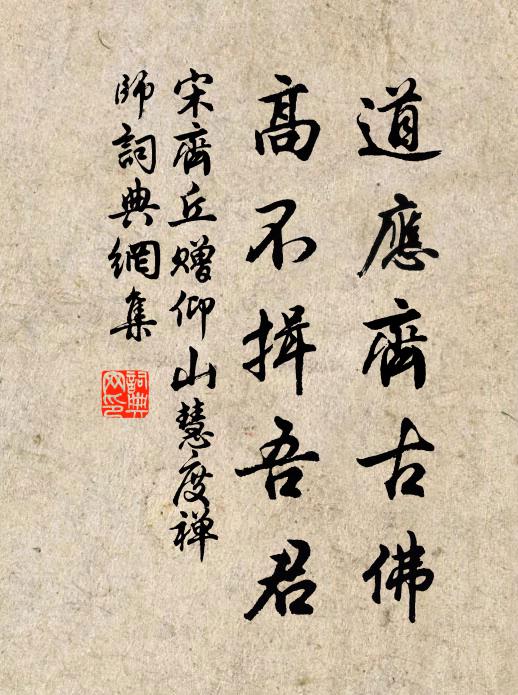 道應齊古佛
高不揖吾君
宋齊丘贈仰山慧度禪
師詞典網集
詞典
网印